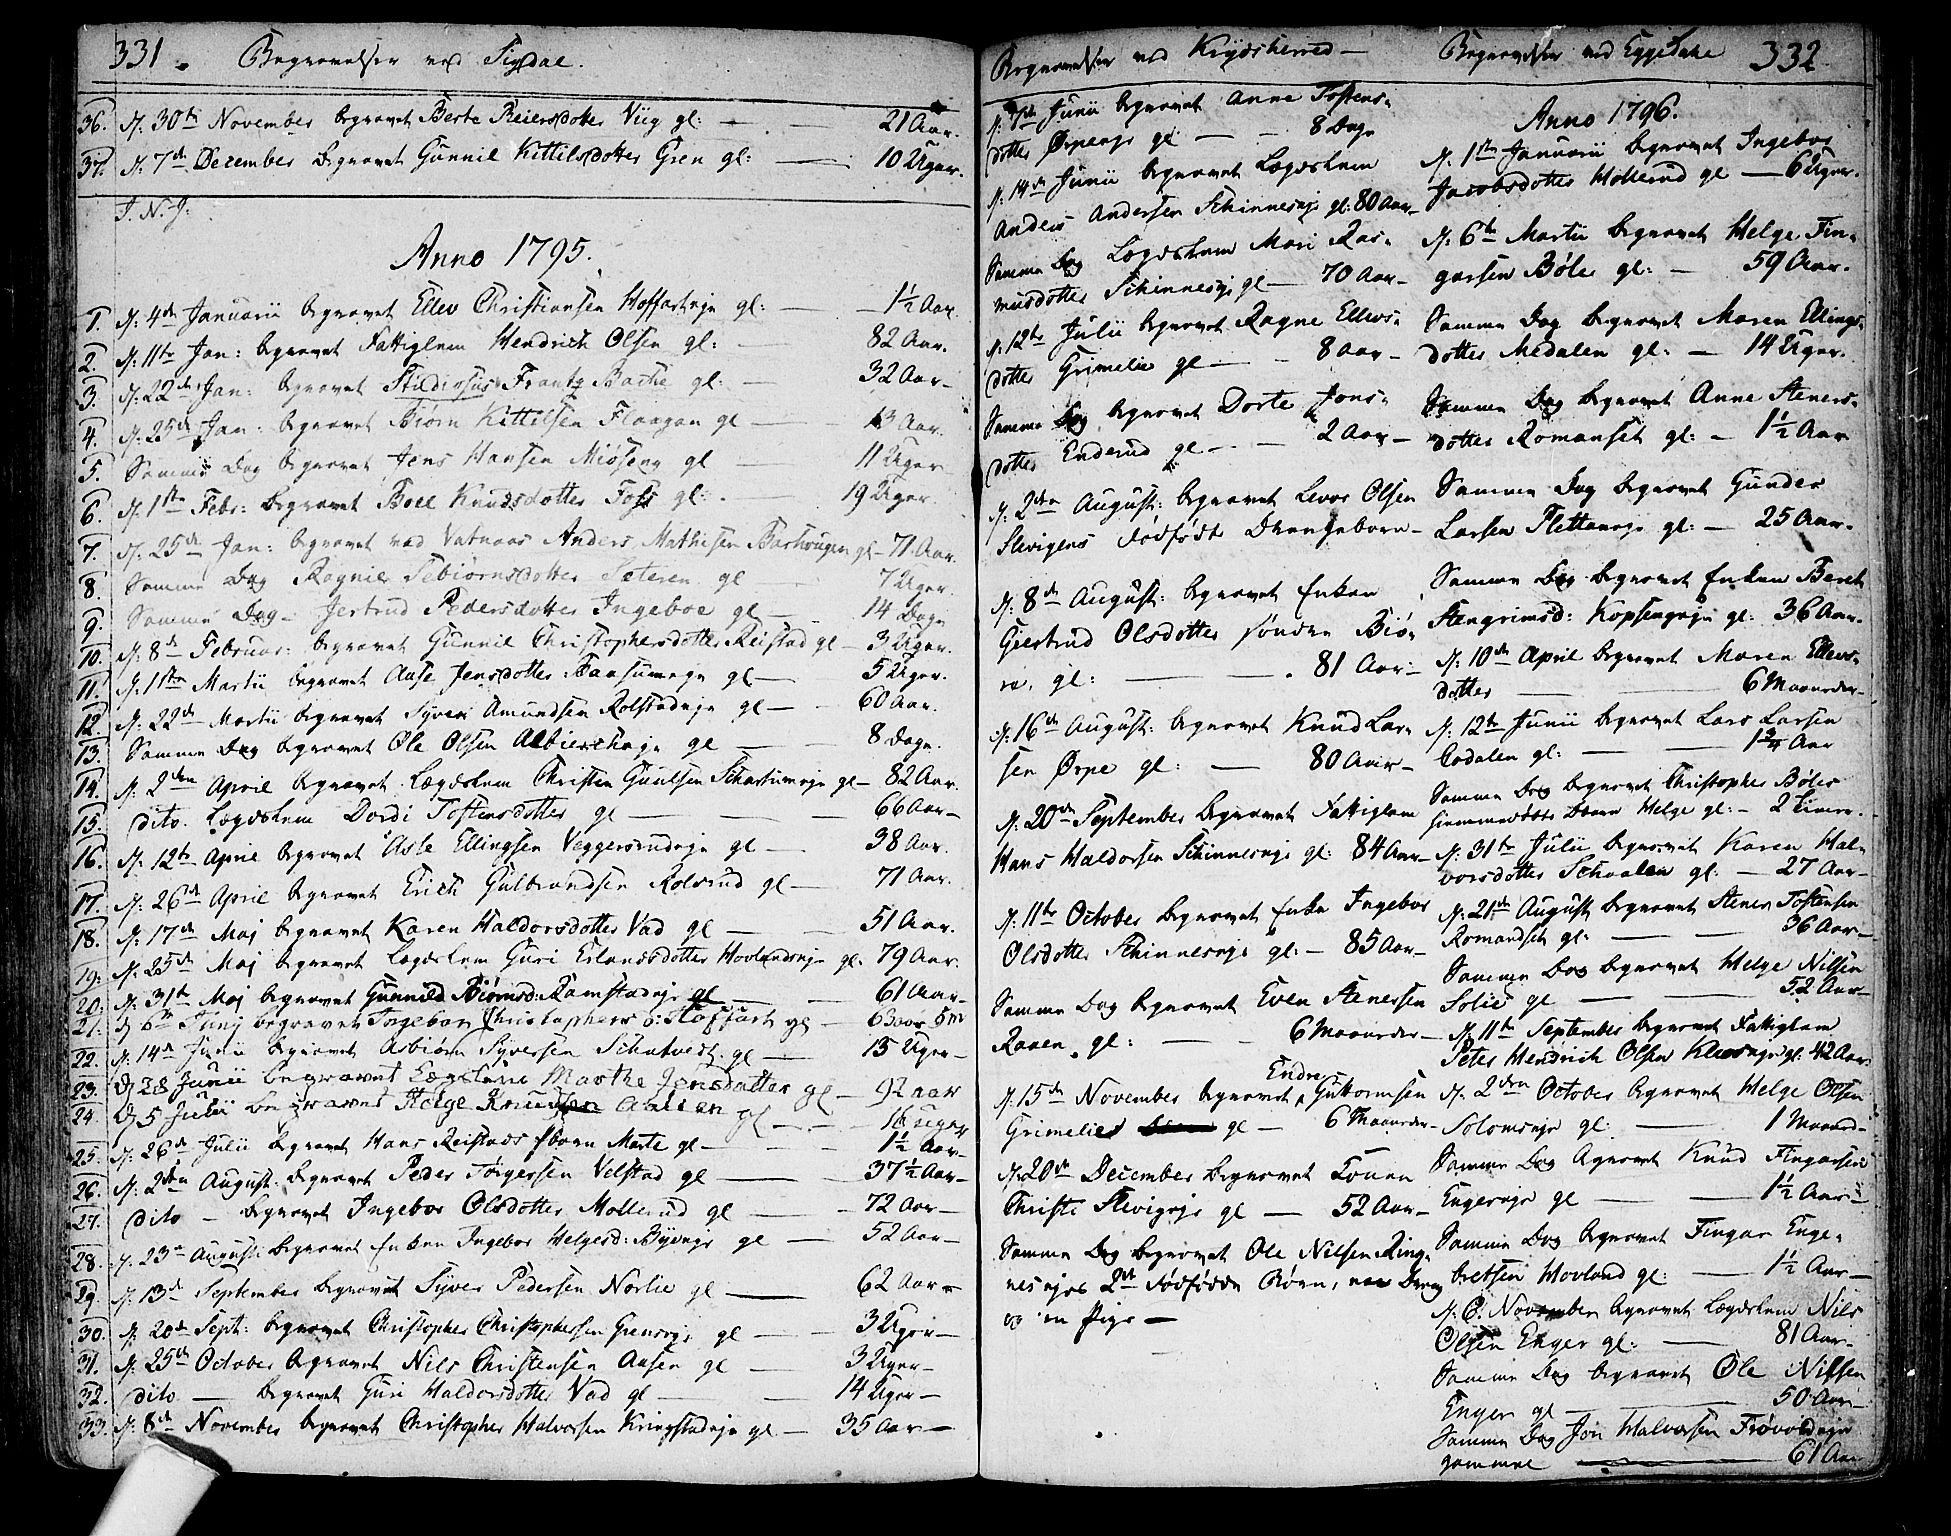 331. Begravelser ved Sigdal.
36. D: 30te November begravet Berte Reiersdotter Viig gl: — 21 Aar.
37. D: 7de December begravet Gunnil Kittilsdotter Gren gl: — 10 Uger.
J. N. J.
Anno 1795.
1. D: 4de Januarii begravet Ellev Christiansen Hoffarteje gl: — 1½ Aar
2. D: 11te Jan: begravet Fattiglem Hendrich Olsen gl: — 82 Aar.
3. D: 22de Jan: begravet Studiosus Frantz Bache gl: — 32 Aar
4. D: 25de Jan: begravet Biørn Kittilsen Flaagan gl — 13 Aar.
5. Samme Dag begravet Jens Hansen Moseng gl — 11 Uger
6. D: 1ste Febr: begravet Boel Knudsdotter Foss gl: — 19 Uger.
7. D: 25de Jan: begravet ved Vatnaas Anders Mathisen gl — 71 Aar.
8. Samme Dag Ragnil Tebiørnsdotter Seteren gl — 7 Uger.
9. Samme Dag Jertrud Pedersdotter Ingeboe gl — 14 Dage
10. D: 8de Februar: begravet Gunnil Christophersdotter Reistad gl — 3 Uger.
11. D: 1ste Martii begravet Aase Jensdotter gl — 5 Uger.
12. D: 22de Martii begravet Syver Amundsen Rolstadeje gl — 60 Aar.
13. Samme Dag begravet Ole Olsen gl — 8 Dage.
14. D: 2den April begravet Lægdslem Christen Guulsen Skartumeje gl — 82 Aar.
15. dito. Lægdslem Dordi Tostensdotter gl — 66 Aar —
16. D: 12te April begravet Asle Ellingsen Veggersrudeje gl — 38 Aar.
17. D: 26de April begravet Erich Gulbrandsen Rolsrud gl — 71 Aar.
18. D: 17de Maj begravet Karen Haldorsdotter Vad gl — 51 Aar.
19. D: 25de Maj begravet Lægdslem Guri Erlandsdotter Hovlandseje gl. 79 Aar.
20. D: 31te Maj begravet Gunnild Biørnsd: Ramstadeje gl — 61 Aar —
21. D 6te Junij begravet Ingebor Christophers D: Hoffart gl — 6 3 aar 5 M
22. D: 14de Junii begravet Asbiørn Syversen Schatvedt gl — 15 Uger —
23. D 28 Junii begravet Lægslem Marthe Jonsdatter gl — 92 aar
24. D 5 Julii begravet Helge Knudsen Aasen gl — 16 uger
25. D: 26de Julii begravet Hans Reistads barn Marte gl — 1½ Aar —
26. D: 2den August: begravet Peder Torgersen Velstad gl — 37½ Aar —
27. dito — begravet Ingebor Olsdotter Mollerud gl — 72 Aar —
28. D. 23de August: begravet Enken Ingebor Helgesd: Byeeje gl — 52 Aar —
29. D: 13de September begravet Syver Pedersen Norlie gl — 62 Aar —
30. D: 20de Sept: begravet Christopher Christophersen Greneje gl — 3 Uger —
31. D: 25de October begravet Nils Christensen Aasen gl — 3 Uger —
32. dito — begravet Guri Haldorsdotter Vad gl — 14 Uger —
33. D: 8de November begravet Christopher Halvorsen Kringstadeje gl — 35 Aar —
Begravelser ved Krydsherred —
D: 7de Junii begravet Anne Tostens-
dotter Ørpenge gl — 8 Dage
D: 14de Junii begravet Lægdslem
Anders Andersen Schinneseje gl: 80 Aar —
Samme Dag Lægdslem Mari Ras-
musdotter Schinneseje gl — 70 Aar —
D: 12te Julii begravet Ragne Ellevs-
dotter Grimelie gl — 8 aar —
Samme Dag begravet Dorte Jons-
dotter Enderud gl — 2 Aar —
D: 2den August: begravet Levor Olsen
Slevigens dødfødt Drengebarn —
D: 8de August: begravet Enken
Giertrud Olsdotter søndre Biø-
re, gl: — 81 Aar —
D: 16de August: begravet Knud Lar-
sen Ørpe gl: — 80 Aar —
D: 20de September begravet Fattiglem
Hans Haldorsen Schinneseje gl: 84 Aar —
D: 11te October begravet Enke Ingebor
Olsdotter Schinneseje gl: — 85 Aar —
Samme Dag begravet Even Stenersen
Raaen gl: — 6 Maaneder —
Endre
D: 15de November begravet Guttormsen
Grimelie gl — 6 Maaneder —
D: 20de December begravet Konen
Christi Slevigeje gl — 52 Aar —
Samme Dag begravet Ole Nilsen Ring-
neseies 2de dødfødde Børn, en Dreng
og en Pige —
Begravelser ved Eggedahl 332
Anno 1796.
D: 1ste Januarii begravet Ingebor
Jacobsdotter Hollerud gl — 6 Uger.
D: 6te Martii begravet Helge Fin-
garsen Bøle gl: — 59 Aar.
Samme Dag begravet Maren Ellings-
dotter Medalen gl: — 14 Uger.
Samme Dag begravet Anne Steners-
dotter Romanset gl: — 1½ Aar
Samme Dag begravet Gunder
Larsen Slettaneje gl: — 25 Aar.
Samme Dag begravet Enken Bereth
Stengrimsd: Kopsengeje gl: 36 Aar.
D: 10de April begravet Maren Ellevs-
dotter — 6 Maaneder —
D: 12te Junii begravet Lars Larsen
Godalen gl: — 1¾ Aar
Samme Dag begravet Christopher Bøles
hiemmedøbte Barn Helge gl: — 2 Timer.
D: 31te Julii begravet Karen Hal-
vorsdotter Schaalen gl: — 27 Aar —
D: 21de August begravet Stener Tostensen
Romandset gl: — 36 Aar —
Samme Dag begravet Helge Nilsen
Solie gl — 52 Aar —
D: 11te September begravet Fattiglem
Peter Hendrich Olsen gl: 42 Aar.
D: 2den October begravet Helge Olsen
Solomseje gl: — 1 Maaned —
Samme Dag begravet Knud Fingarsen
Engereje gl — 1½ Aar —
Samme Dag begravet Fingar Enge-
bretsen Hovland gl: — 1½ Aar —
D: 6. November begravet Lægdslem Nils
Olsen Enger gl: — 81 Aar —
Samme Dag begravet Ole Nilsen
Enger gl — 50 Aar —
Samme Dag Jon Halvorsen Frøvoldeje
gammel — 61 Aar